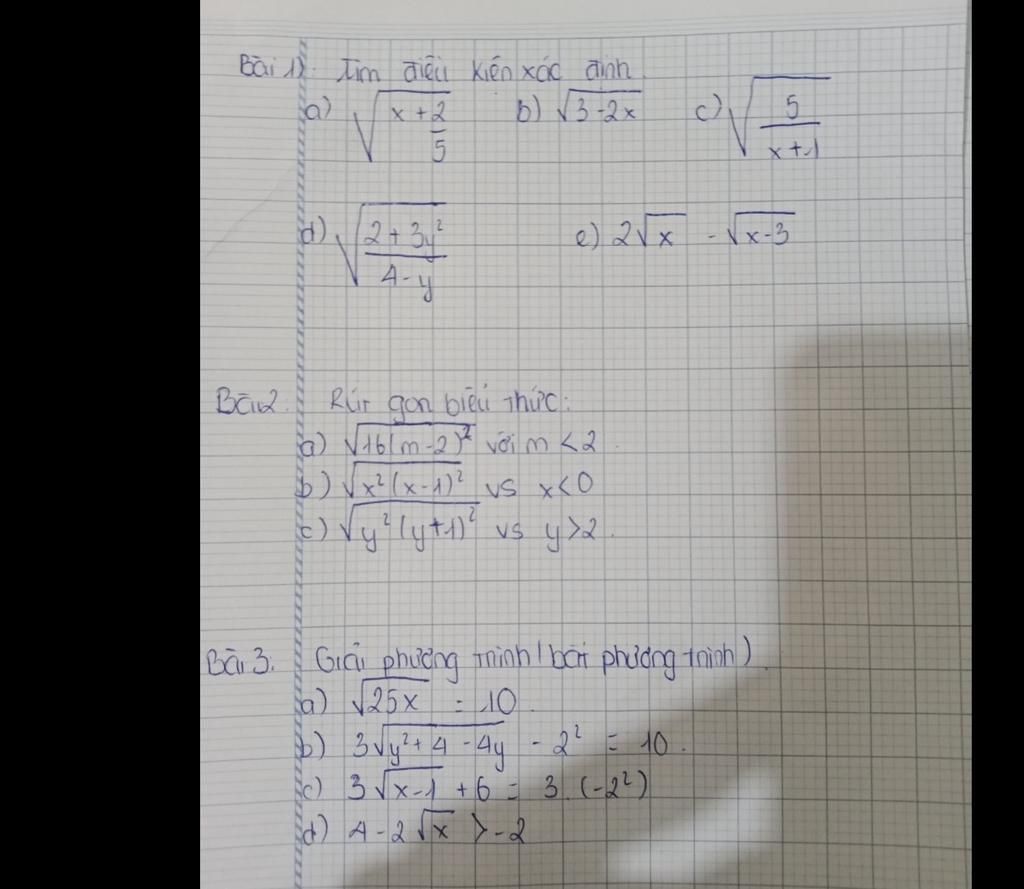 Bài 1) Tìm điều kiện xác định.
a) √(x + 2/5) b) √(3-2x) c) √(5/(x+1))
d) √((2+3y²)/(4-y)) e) 2√x - √(x-3)
Bài 2. Rút gọn biểu thức:
a) √(16(m-2)²) với m < 2.
b) √(x²(x-1)²) vs x<0
c) √(y²(y+1)²) vs y>2.
Bài 3. Giải phương trình (bất phương trình).
a) √(25x) = 10.
b) 3√(y²+4-4y) - 2² = 10.
c) 3√(x-1) + 6 = 3.(-2²)
d) 4-2√x > -2